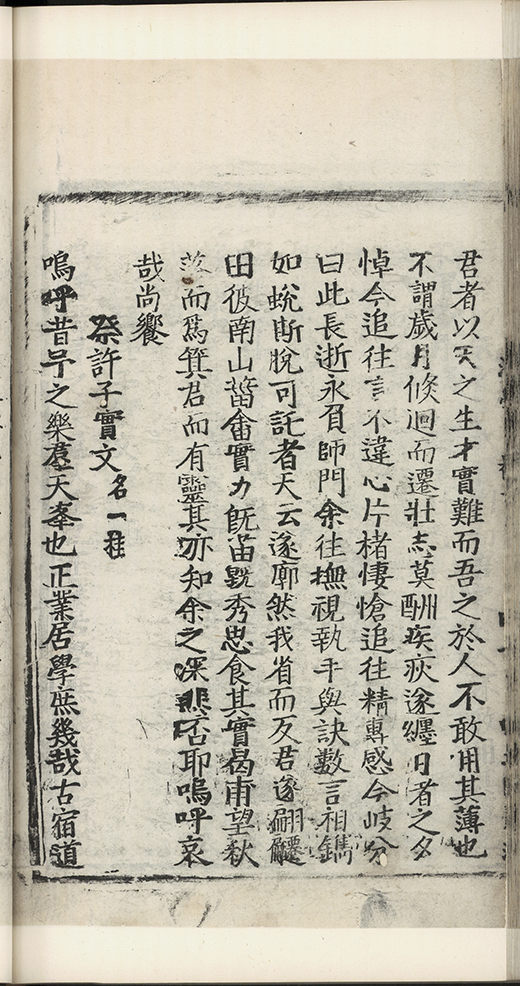 君者以天之生才實難而吾之於人不敢用其薄也
不謂歲月倏迴而遷壯志莫酬疾疢遂纏日者之夕
悼今追往言不違心片楮悽愴追往精專感今岐分
曰此長逝永負師門余往撫視執手與訣數言相鐫
如蛻斯脫可託者天云遂廓然我省而反君遂翩躚
田彼南山菑畬實力旣苗旣秀忠食其實曷甫望秋
落而爲箕君而有靈其亦知余之深悲否耶嗚呼哀
哉尚饗
祭許子實文 名一稚
嗚呼昔予之樂羣天峯也正業居學庶幾哉古宿道